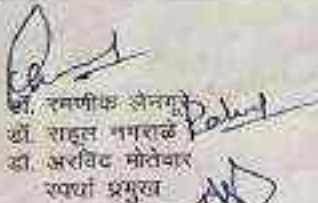 डॉ. रमणीक लेनगुरे
डॉ. राहूल नगराळे
डॉ. अरविंद मोतेवार
स्पर्धा प्रमुख